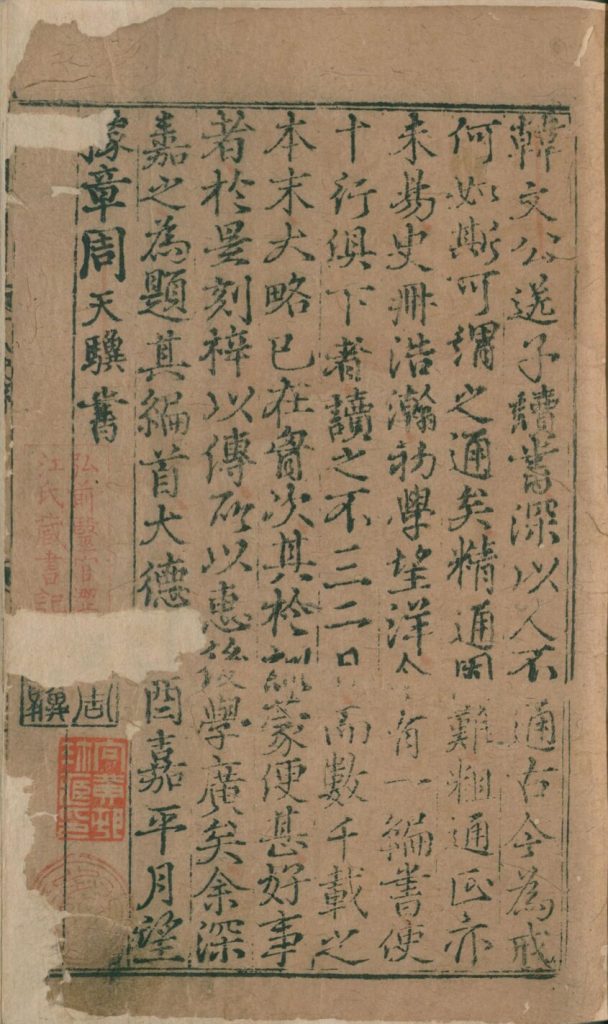 韓文公送子讀書深以人不通古今為戒
何如斯可謂之通矣精通固難粗通正亦
未易史冊浩瀚初學望洋今有一編書使
十行俱下者讀之不三二日而數千載之
本末大略已在胷次其於訓蒙便甚好事
者於是刻梓以傳所以惠後學廣矣余深
嘉之為題其編首大德酉嘉平月望
豫章周天驥書
弘前醫官
江氏藏書記
周
驥